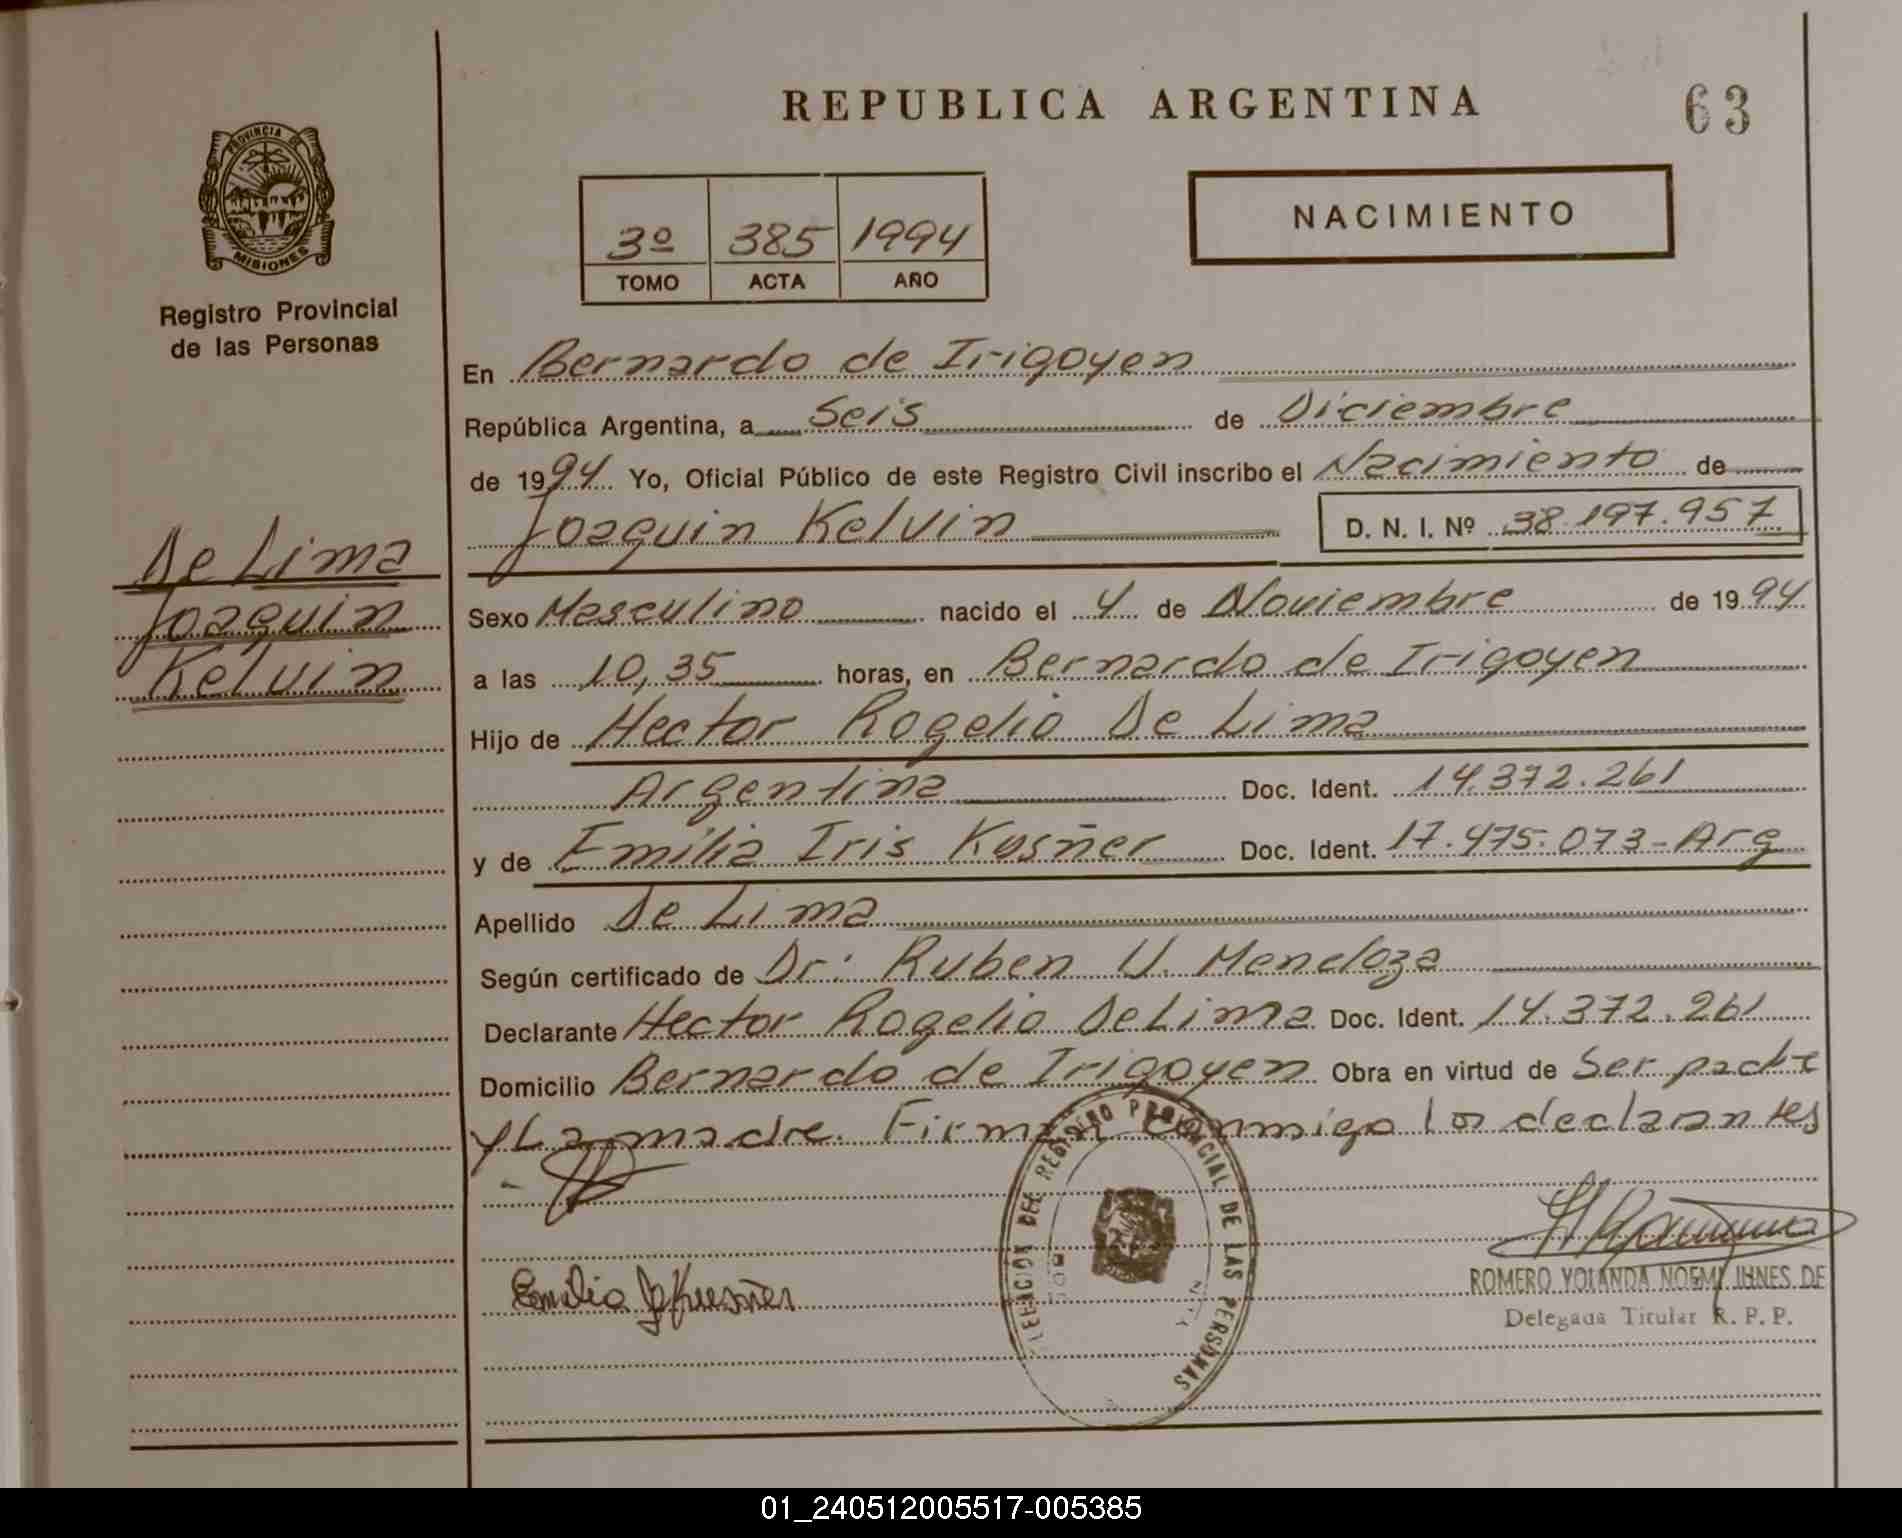 REPUBLICA ARGENTINA
63
PROVINCIA DE
MISIONES
Registro Provincial
de las Personas
3º 385 1994
TOMO ACTA AÑO
NACIMIENTO
De Lima
Joaquin
Kelvin
En Bernardo de Irigoyen
República Argentina, a Seis de Diciembre
de 1994 Yo, Oficial Público de este Registro Civil inscribo el Nacimiento de
Joaquin Kelvin D. N. I. Nº 38.197.957
Sexo Masculino nacido el 4 de Noviembre de 1994
a las 10,35 horas, en Bernardo de Irigoyen
Hijo de Hector Rogelio De Lima
Argentina Doc. Ident. 14.372.261
y de Emilia Iris Kusñer Doc. Ident. 17.475.073-Arg
Apellido De Lima
Según certificado de Dr: Ruben U. Mendoza
Declarante Hector Rogelio De Lima Doc. Ident. 14.372.261
Domicilio Bernardo de Irigoyen Obra en virtud de Ser padre
y La madre. Firman conmigo los declarantes
REGISTRO PROVINCIAL DE LAS PERSONAS
Emilia
ROMERO YOLANDA NOEMI DE
Delegada Titular R. P. P.
01_240512005517-005385